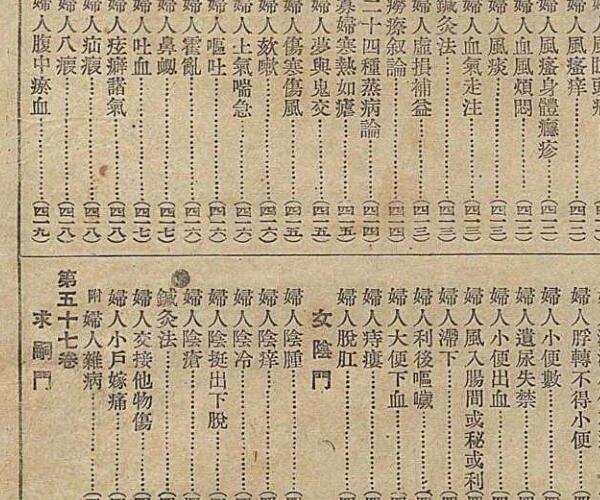 婦人風瘙癢
婦人風瘙身體癮疹……(四一二)
婦人血風煩悶……(四一二)
婦人風痰……(四一三)
婦人血氣走注……(四一三)
鍼灸法……(四一三)
婦人虛損補益……(四一三)
癆瘵叙論……(四一四)
二十四種蒸病論……(四一四)
寡婦寒熱如瘧……(四一五)
婦人夢與鬼交……(四一五)
婦人傷寒傷風……(四一五)
婦人欬嗽……(四一六)
婦人上氣喘急……(四一六)
婦人嘔吐……(四一六)
婦人霍亂……(四一六)
婦人鼻衂……(四一七)
婦人吐血……(四一七)
婦人痃癖諸氣……(四一八)
婦人疝瘕……(四一八)
婦人八瘕……(四一八)
婦人腹中瘀血……(四一九)
婦人脬轉不得小便
婦人小便數
婦人遺尿失禁
婦人小便出血
婦人風入腸間或秘或利
婦人滯下
婦人利後嘔噦
婦人大便下血
婦人痔瘻
婦人脫肛
女陰門
婦人陰腫
婦人陰痒
婦人陰冷
婦人陰挺出下脫
婦人陰瘡
鍼灸法
婦人交接他物傷
婦人小戶嫁痛
附婦人雜病
第五十七卷
求嗣門